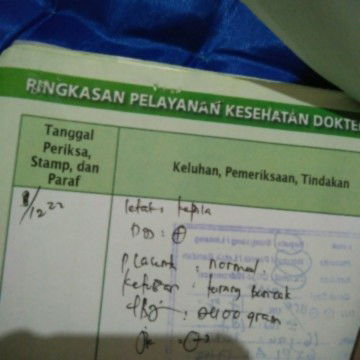 RINGKASAN PELAYANAN KESEHATAN DOKTE
Tanggal
Periksa,
Stamp, dan
Paraf
Keluhan, Pemeriksaan, Tindakan
8/12 22
letak : kepala
DJJ : +
placenta : normal.
ketuban : kurang banyak
: 2400 gram
Jk : ♂